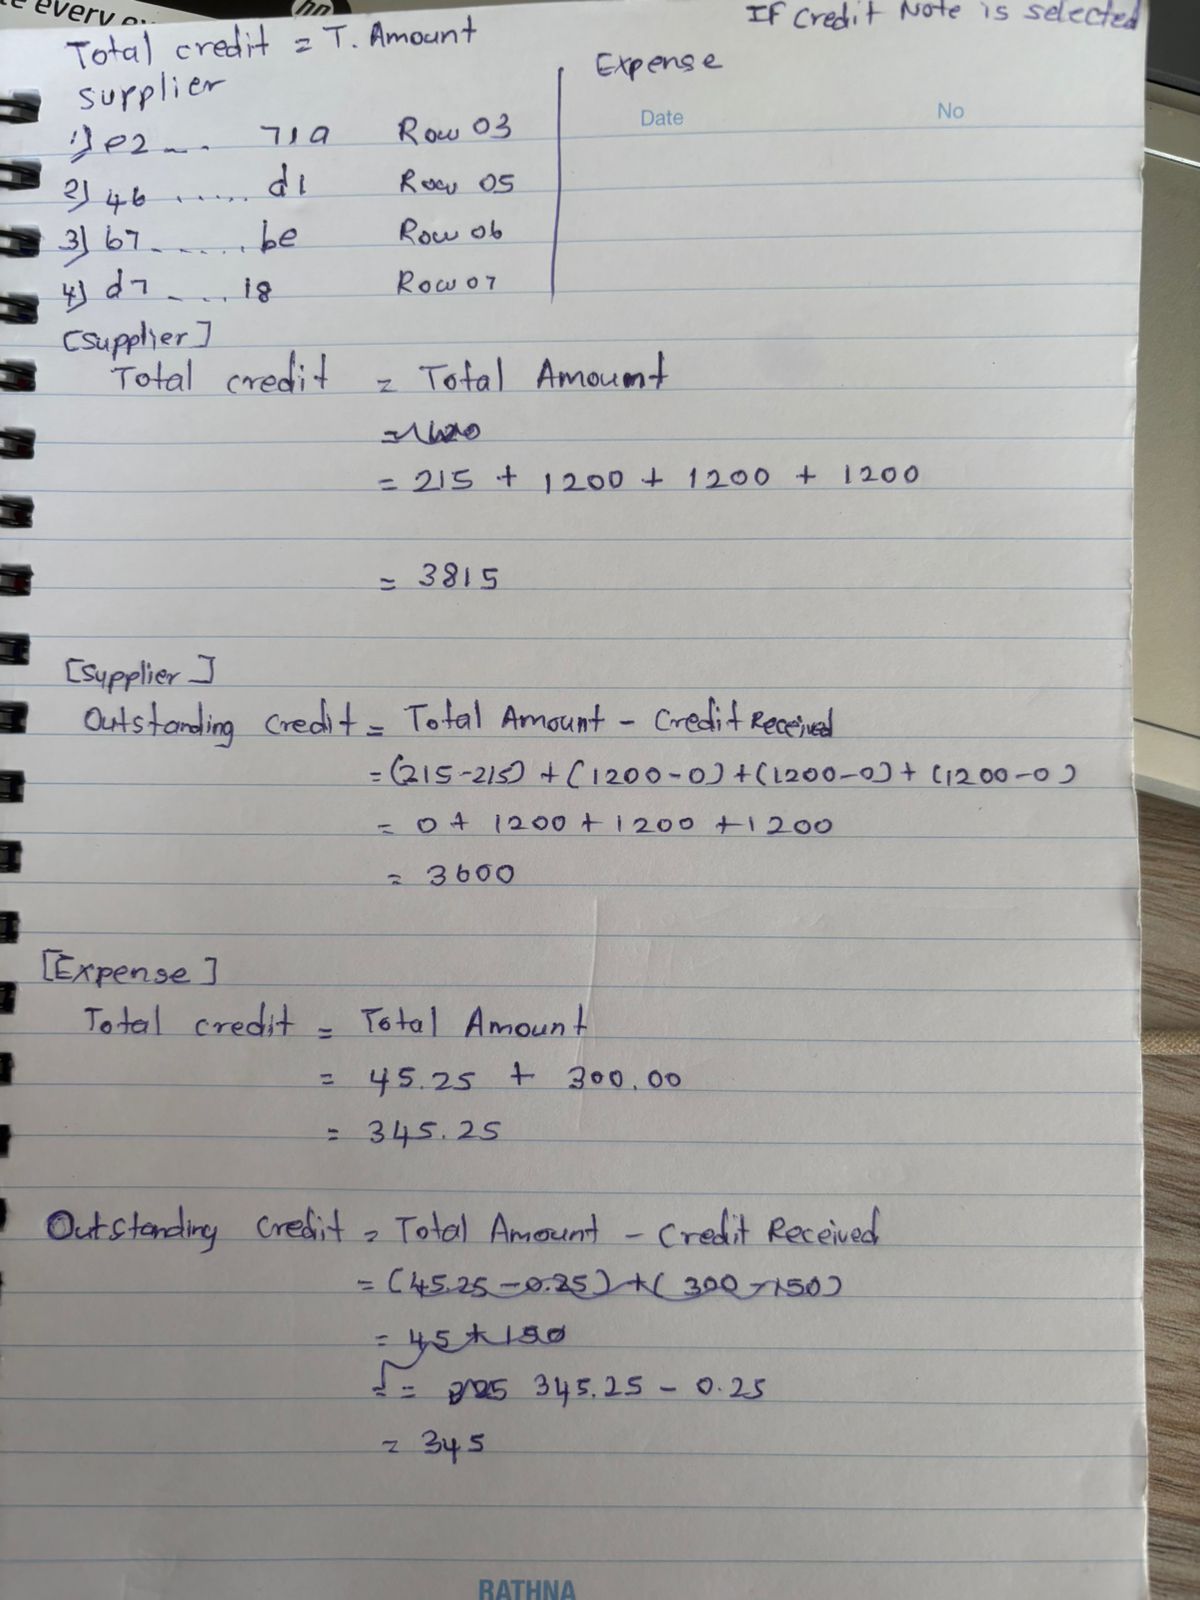 every
hp
IF Credit Note is selected
Total credit = T. Amount
Supplier
Expense
Date No
1) e2 --. 71a Row 03
2) 46 ...... d1 Row 05
3) b7 - .... be Row 06
4) d7 - ... 18 Row 07
[Supplier]
Total credit = Total Amount
=
= 215 + 1200 + 1200 + 1200
= 3815
[Supplier]
Outstanding Credit = Total Amount - Credit Received
= (215-215) + (1200-0) + (1200-0) + (1200-0)
= 0 + 1200 + 1200 + 1200
= 3600
[Expense]
Total credit = Total Amount
= 45.25 + 300.00
= 345.25
Outstanding Credit = Total Amount - Credit Received
= (45.25 - 0.25) + (300 - 150)
= 45 + 150
= = 345.25 - 0.25
= 345
RATHNA